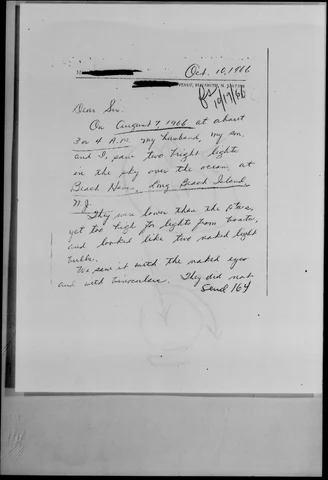 Oct. 10, 1966
10/19/66
Dear Sir.
On August 7 1966 at about
3 or 4 A.M. my husband, my son,
and I, saw two bright lights
in the sky over the ocean at
Beach Haven, Long Beach Island,
N.J.
They were lower than the stars,
yet too high for lights from boats,
and looked like two naked light
bulbs.
We saw it with the naked eyes
and with binoculars. They did not
Send 164